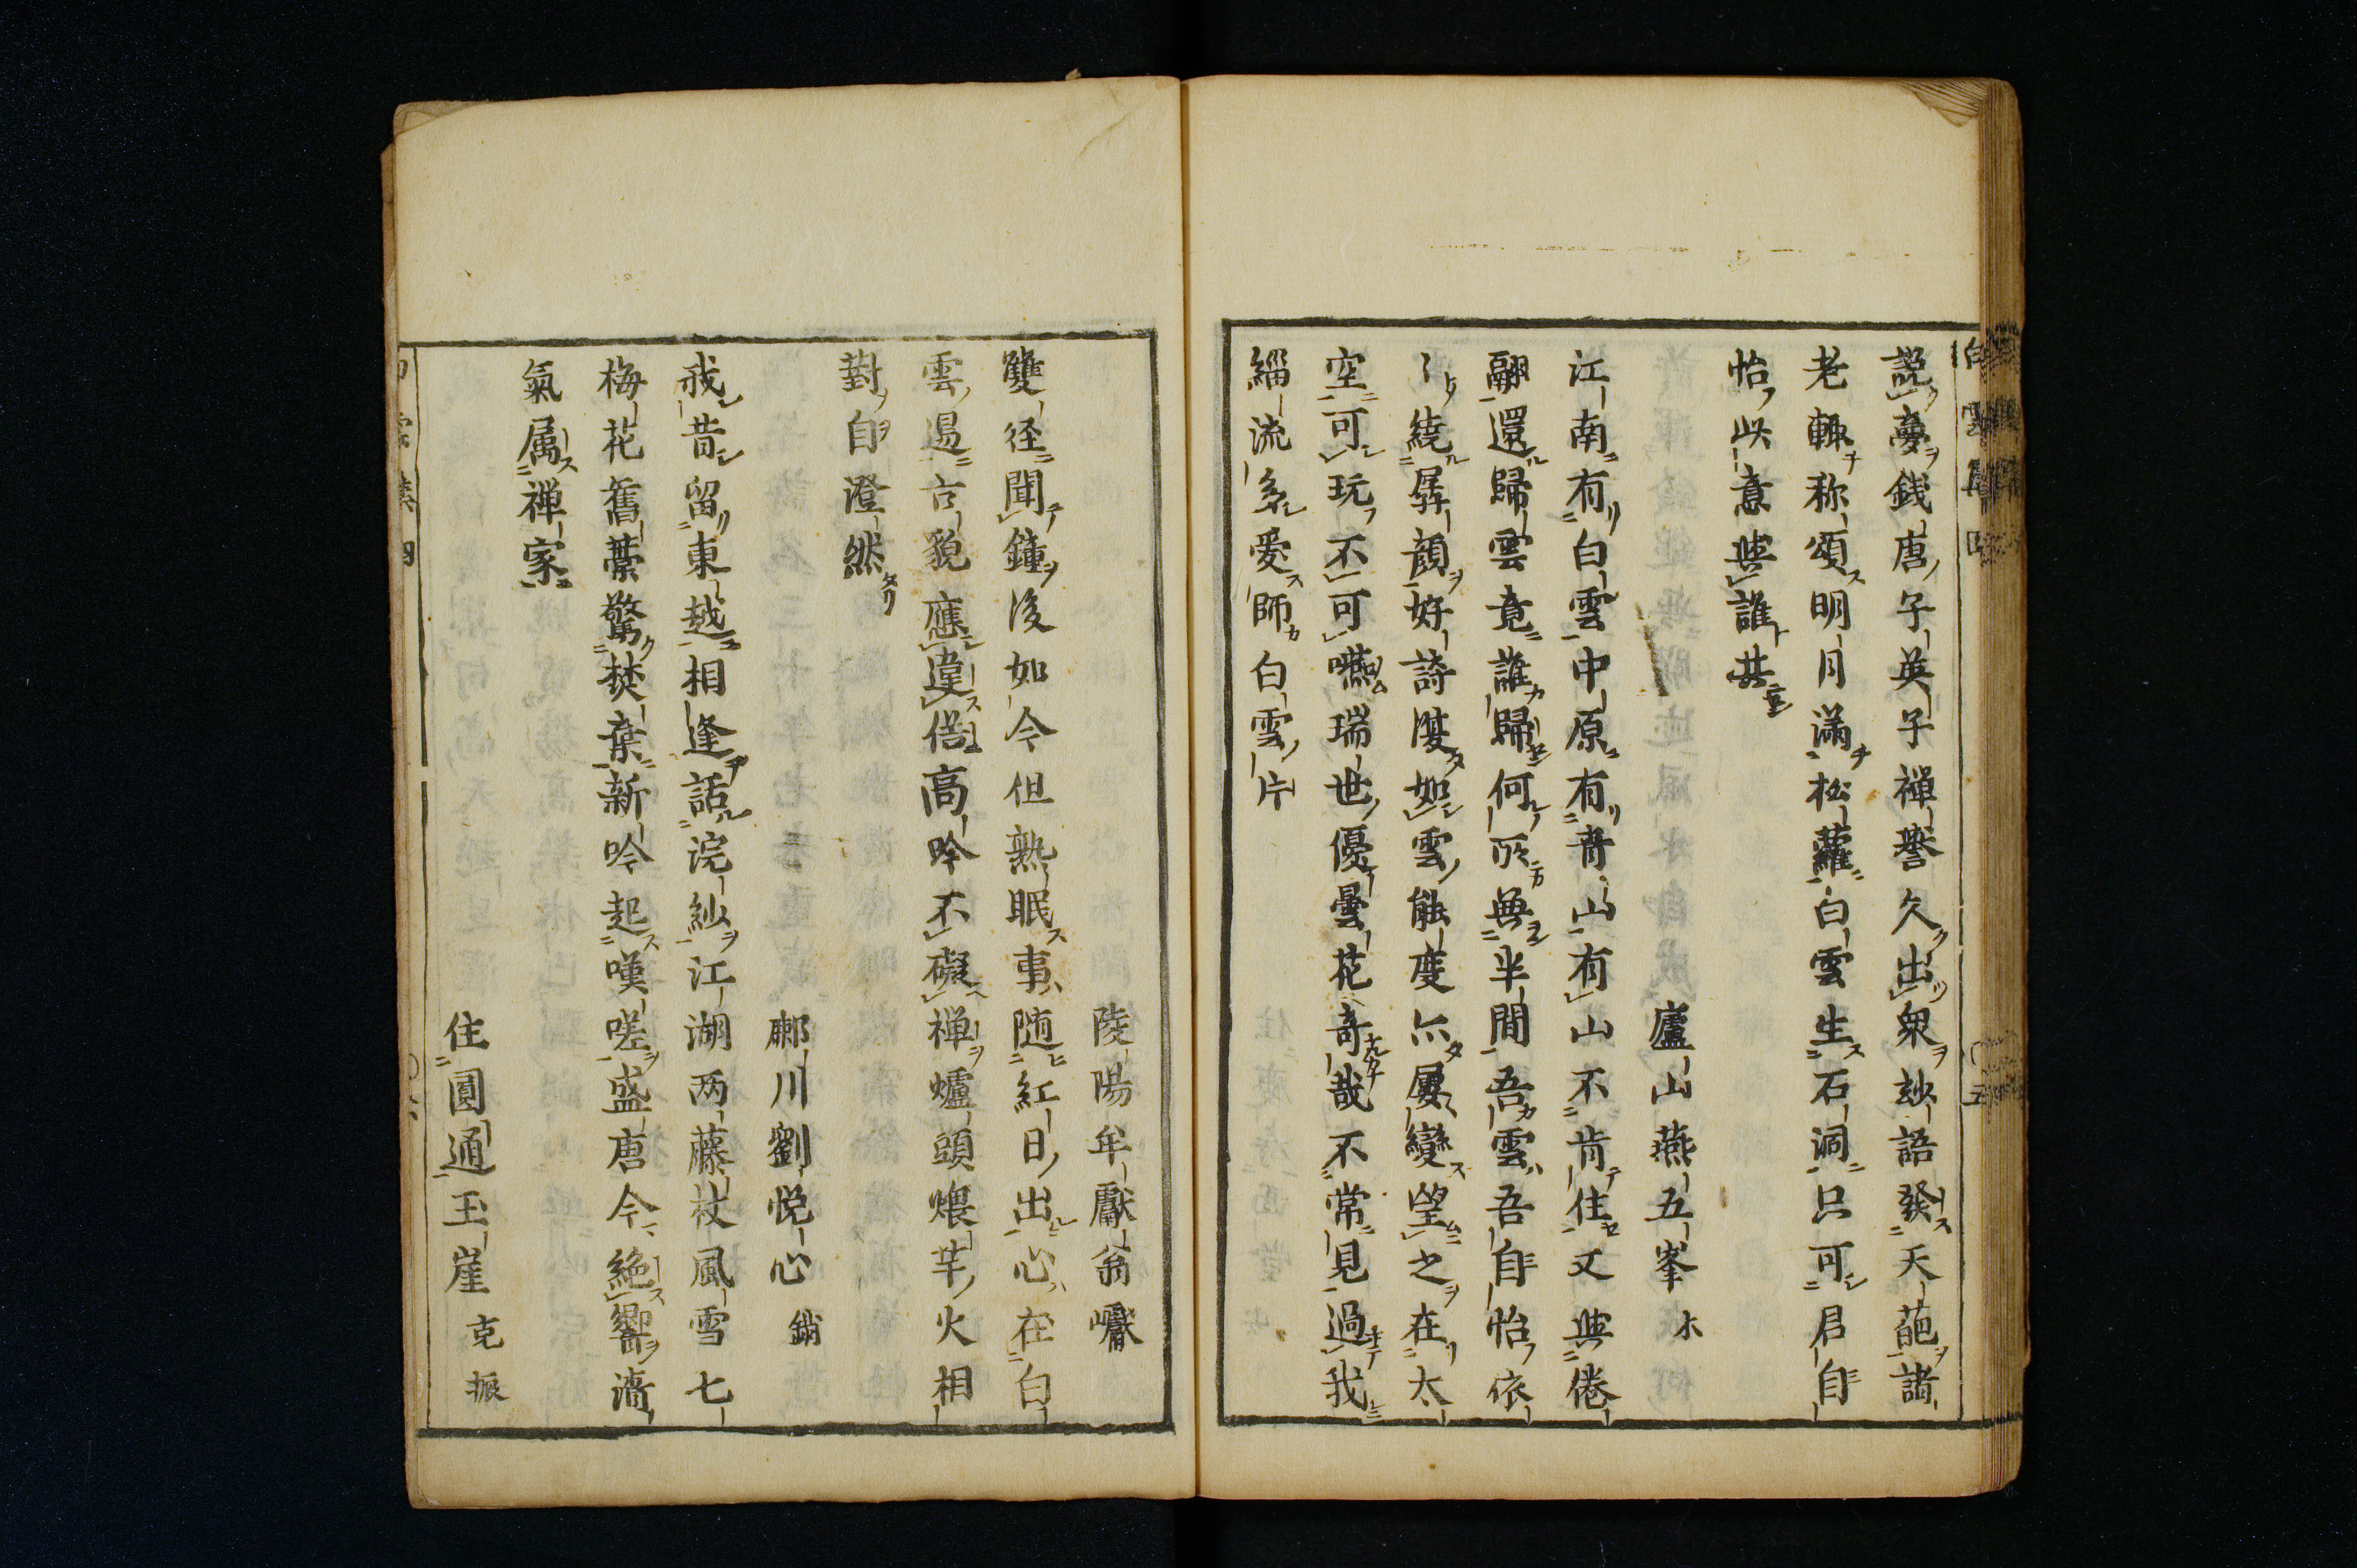 説夢銭唐子英子禅誉久出衆玅語発天葩諸
老輙称頌明月満松蘿白雲生石洞只可君自
怡此意與誰共
廬山燕五峯
江南有白雲中原有青山有山不肯住又與倦
翮還歸雲竟誰歸何所無半間吾雲吾自怡依
〻繞孱顔好詩澓如雲能度亦屢變望之在太
空可玩不可嚥瑞世優曇花奇哉不常見過我
緇流多愛師白雲片
陵陽牟獻翁巘
雙径聞鐘後如今但熟眠事随紅日出心在白
雲邉古貌應違俗高吟不礙禅爐頭煨芋火相
對自澄然
鄜川劉悦心錥
戒昔留東越相逢話浣紗江湖两藤杖風雪七
梅花舊藁驚焚棄新吟起嘆嗟盛唐今絶響濇
氣属禅家
住圓通玉崖克振